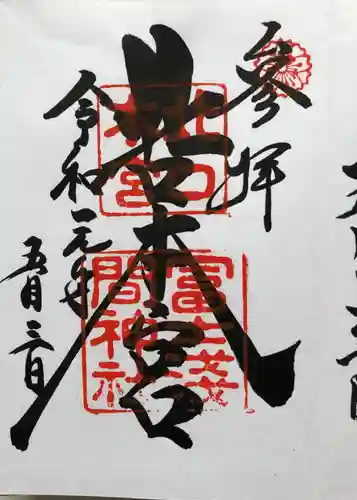 参拝
北口本宮
令和元年
五月三日
北口
本宮
冨士浅
間神社